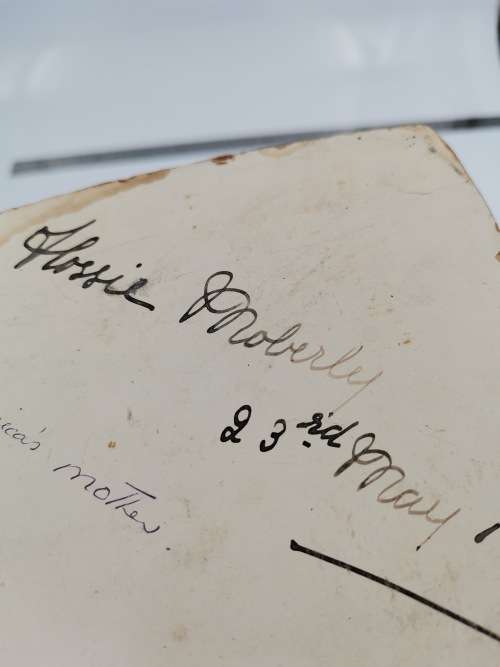 Flossie Moberly
23rd May
mother.